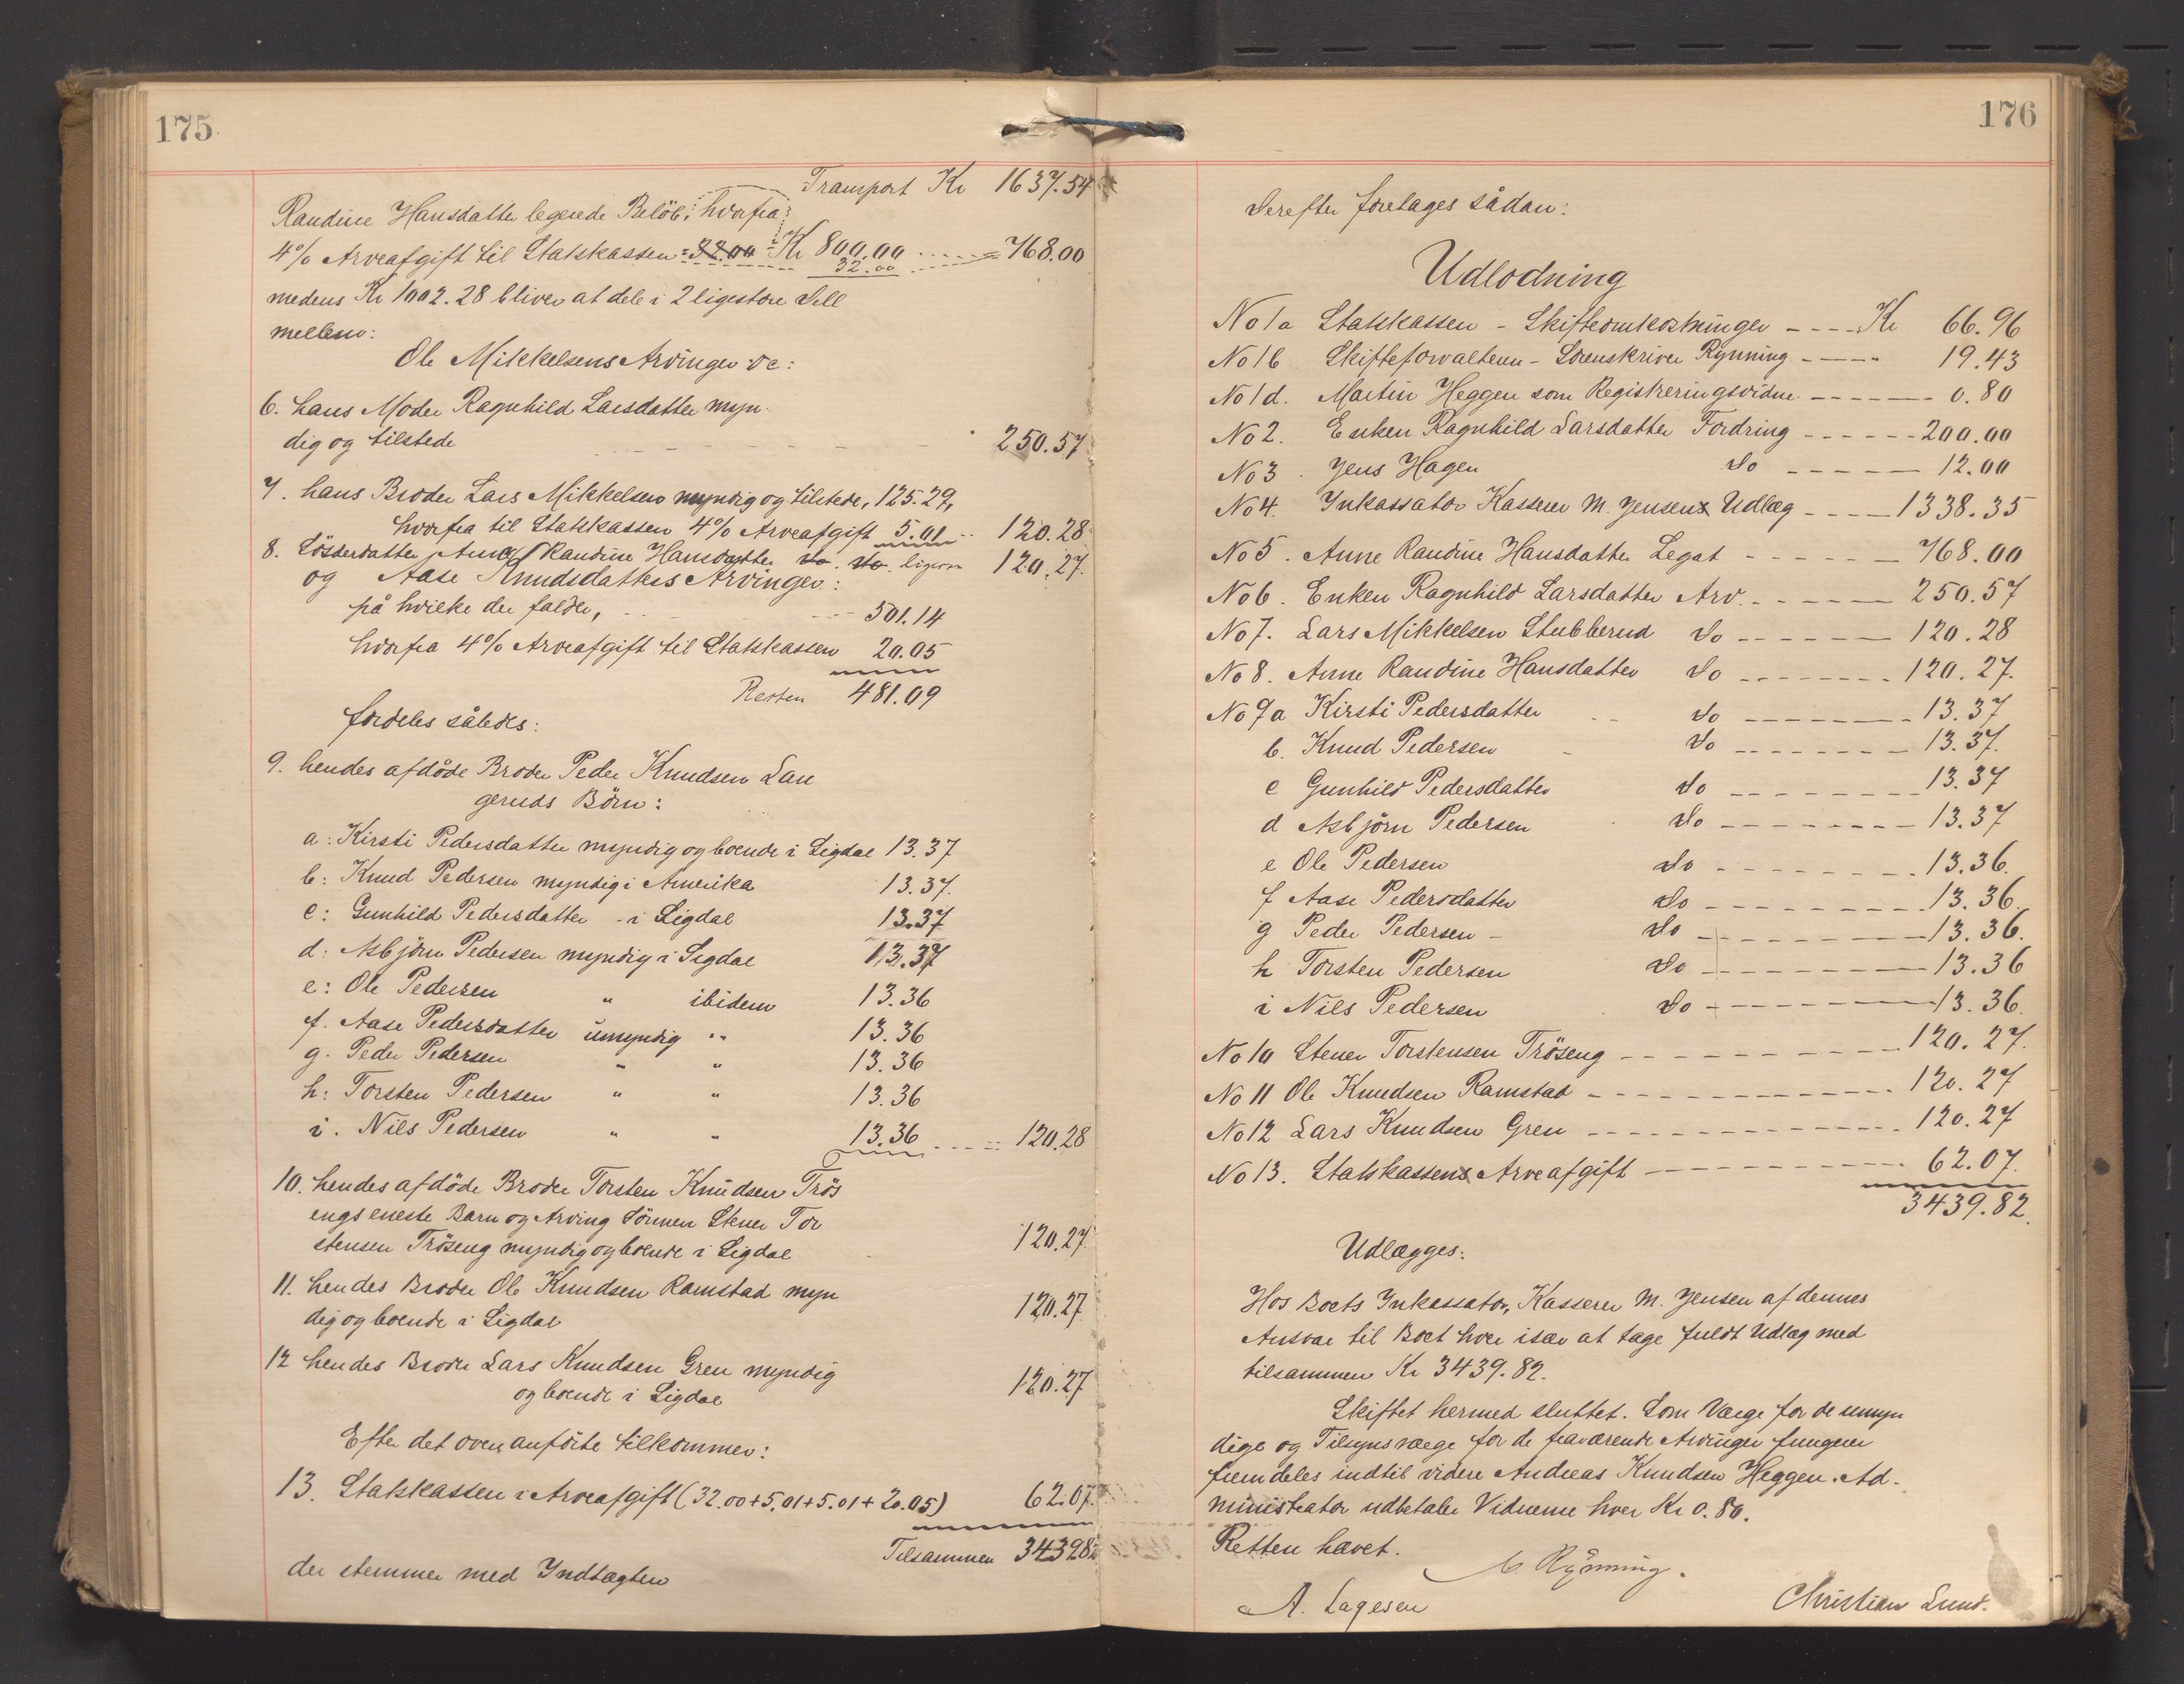 175
Transport Kr 1637.54
Randine Hansdatter legerede Beløb, hvorfra
4% Arveafgift til Statskassen 32.00 Kr 800.00 = 768.00
32.00
medens Kr 1002.28 bliver at dele i 2 ligestore Dele
mellem:
Ole Mikkelsens Arvinger
6. hans Moder Ragnhild Larsdatter myn-
dig og tilstede 250.57
7. hans Broder Lars Mikkelsen myndig og tilstede, 125.29,
hvorfra til Statskassen 4% Arveafgift 5.01 120.28
8. Søsterdatter Anne Randine Hansdatter do. do. 120.27.
og Aase Knudsdatters Arvinger:
på hvilke der falder, 501.14
hvorfra 4% Arveafgift til Statskassen 20.05
Resten 481.09
fordeles således:
9. hendes afdøde Broder Peder Knudsen Lan
geruds Børn:
a: Kirsti Pedersdatter myndig og boende i Sigdal 13.37
b: Knud Pedersen myndig i Amerika 13.37.
c: Gunhild Pedersdatter - i Sigdal 13.37
d: Asbjörn Pedersen myndig i Sigdal 13.37
e: Ole Pedersen " ibidem 13.36
f. Aase Pedersdatter umyndig " 13.36
g. Peder Pedersen " " 13.36
h: Torsten Pedersen " " 13.36
i. Nils Pedersen " " 13.36 120.28
10. hendes afdöde Broder Torsten Knudsen Trös
engs eneste Barn og Arving Sönnen Stener Tor
stensen Tröseng myndig og boende i Sigdal 120.27.
11. hendes Broder Ole Knudsen Ramstad myn
dig og boende i Sigdal 120.27
12 hendes Broder Lars Knudsen Gren myndig
og boende i Sigdal 120.27
Efter det oven anförte tilkommer:
13. Statskassen i Arveafgift (32.00+5.01+5.01+20.05) 62.07.
Tilsammen 3439.82
der stemmer med Indtægten
176
Derefter foretages sådan:
Udlodning
No 1a Statskassen - Skifteomkostninger ---- Kr 66.96
No 1b. Skifteforvalteren - Sorenskriver Rynning ---- " 19.43
No 1d. Martin Heggen som Registreringsvidne ------ 0.80
No 2. Enken Ragnhild Larsdatter Fordring ------ 200.00
No 3. Jens Hagen Do ----- 12.00
No 4. Inkassator Kasserer M. Jensens Udlæg ---- 1338.35
No 5. Anne Randine Hansdatter Legat ----- 768.00
No 6. Enken Ragnhild Larsdatter Arv. ----- 250.57
No 7. Lars Mikkelsen Stubberud Do ------ 120.28
No 8. Anne Randine Hansdatter Do ------- 120.27.
No 9a Kirsti Pedersdatter Do ------- 13.37
b. Knud Pedersen - Do ------- 13.37.
c Gunhild Pedersdatter Do -------- 13.37
d Asbjörn Pedersen Do -------- 13.37
e Ole Pedersen Do -------- 13.36.
f Aase Pedersdatter Do -------- 13.36.
g Peder Pedersen - Do -------- 13.36.
h Torsten Pedersen Do -------- 13.36
i Nils Pedersen Do -------- 13.36.
No 10 Stener Torstensen Tröseng --------- 120.27.
No 11 Ole Knudsen Ramstad ----------- 120.27
No 12 Lars Knudsen Gren ----------- 120.27
No 13. Statskassens Arveafgift ---------- 62.07.
3439.82.
Udlægges:
Hos Boets Inkassator, Kasserer M. Jensen af dennes
Ansvar til Boet hver især at tage fuldt Udlæg med
tilsammen Kr 3439.82.
Skiftet hermed sluttet. Som Værge for de umyn
dige og Tilsynsværge for de fraværende Arvinger fungerer
fremdeles indtil videre Andreas Knudsen Heggen. Ad-
ministrator udbetaler Vidnerne hver Kr 0.80.
Retten hævet.
Rynning.
A. Lagesen Christian Lund.